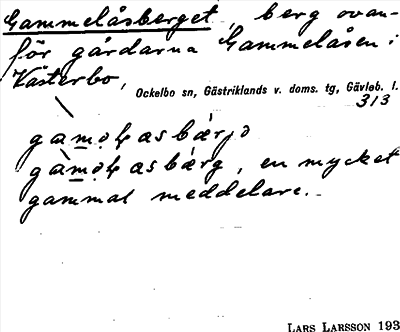 Gammelåsberget, berg ovan-
för gårdarna Gammelåsen i
Västerbo,
Ockelbo sn, Gästriklands v. doms. tg, Gävleb. l.
313
en mycket
gammal meddelare.
LARS LARSSON 193